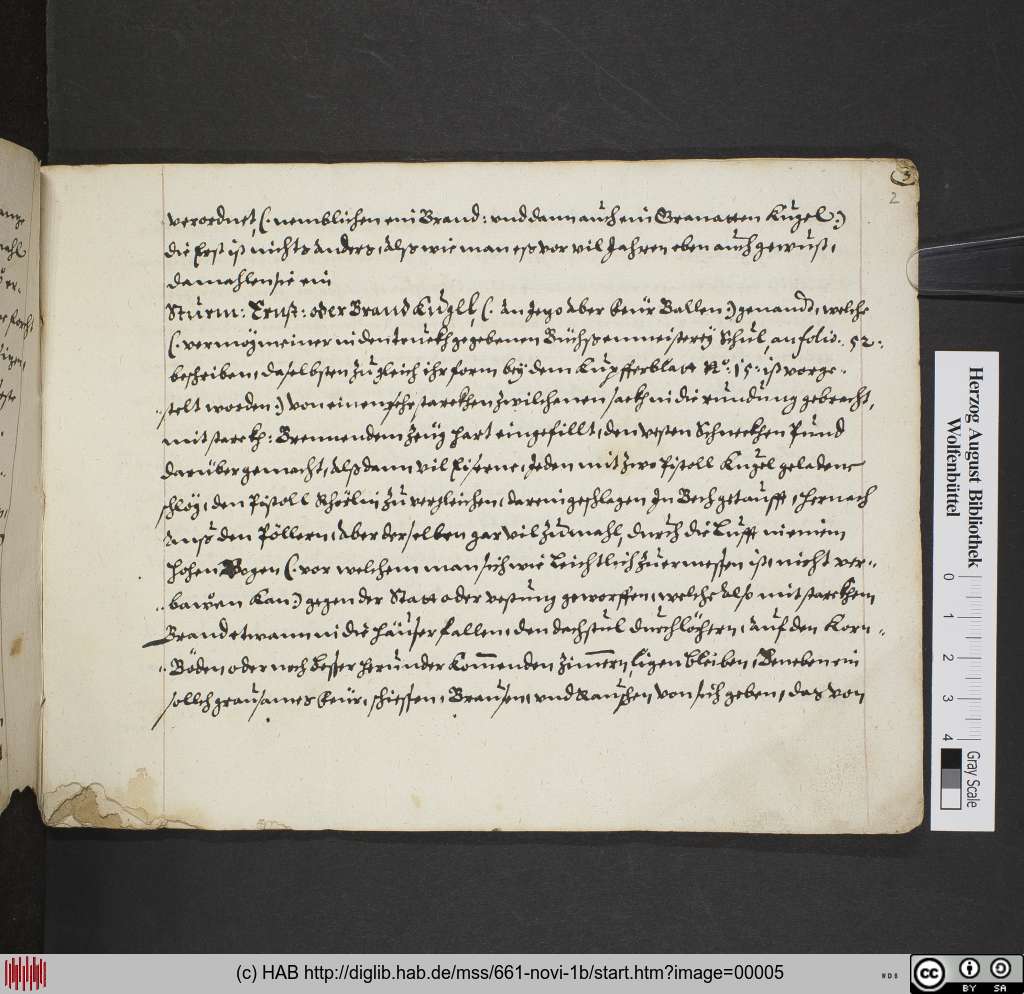 3
2
verordnet, (: nemblichen ein Brand: und dann auch ein Granatten Kugel:)
die Erst ist nichts anders, alß wie man eß vor vil Jahren eben auch gewust,
damahlen sie ein
Sturm: Ernst: oder Brand Kugel, (: an Jezo aber feür Ballen:) genandt, welche
(: vermög meiner in den truckh gegebenen Büchssenmeisterey Schul, an folio: 52:
beschriben, daselbsten zugleich ihr form bey dem Kupfferblatt N.º 15: ist vorge-
stelt worden:) von einem sehr starckhen zwilchenen sackh in die rundung gebracht,
mit starckh: Brennendem zeüg hart eingefillt, den vesten Schneckhen Pund
darüber gemacht, alßdann vil Eiserne, Jeden mit zwo Pistoll Kugel geladene
schläg, den Pistoll Rhörlin zu vergleichen, darein geschlagen, In Bech getaufft, hernach
auß den Pöllern, aber derselben gar vil zumahl, durch die Lufft in einem
hohen Bogen (: vor welchem man sich wie leichtlich zuermessen ist, nicht ver-
bawen kan:) gegen der Statt oder vestung geworffen, welche also mit starckhem
Brand etwann in die häuser fallen, den dachstul durchlöchern, auf den Korn-
Böden oder noch besser herunder kommenden zimmern, ligen bleiben, beneben ein
sollch grausames feür, schiessen, Brausen, und Rauschen von sich geben, das von
Herzog August Bibliothek
Wolfenbüttel
0 1 2 3 4
Gray Scale
(c) HAB http://diglib.hab.de/mss/661-novi-1b/start.htm?image=00005
cc BY SA